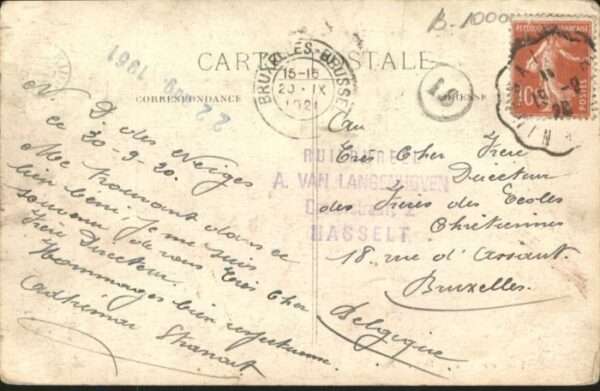 B-1000
CARTE POSTALE
CORRESPONDANCE
ADRESSE
BRUXELLES-BRUSSEL
15-16
20 IX
REPUBLIQUE FRANÇAISE
10
POSTES
22 Aug. 1961
N. D des Neiges
ce 20-9-20.
Me trouvant dans ce
lieu béni, je me suis
souvenu de vous Très Cher
Frère Directeur.
Hommages bien respectueux.
Adhémar
Au
Très Cher Frère
Directeur
des Frères des Ecoles
Chrétiennes
18 rue d'Assaut.
Bruxelles.
Belgique.
A. VAN LANGENHOVEN
HASSELT